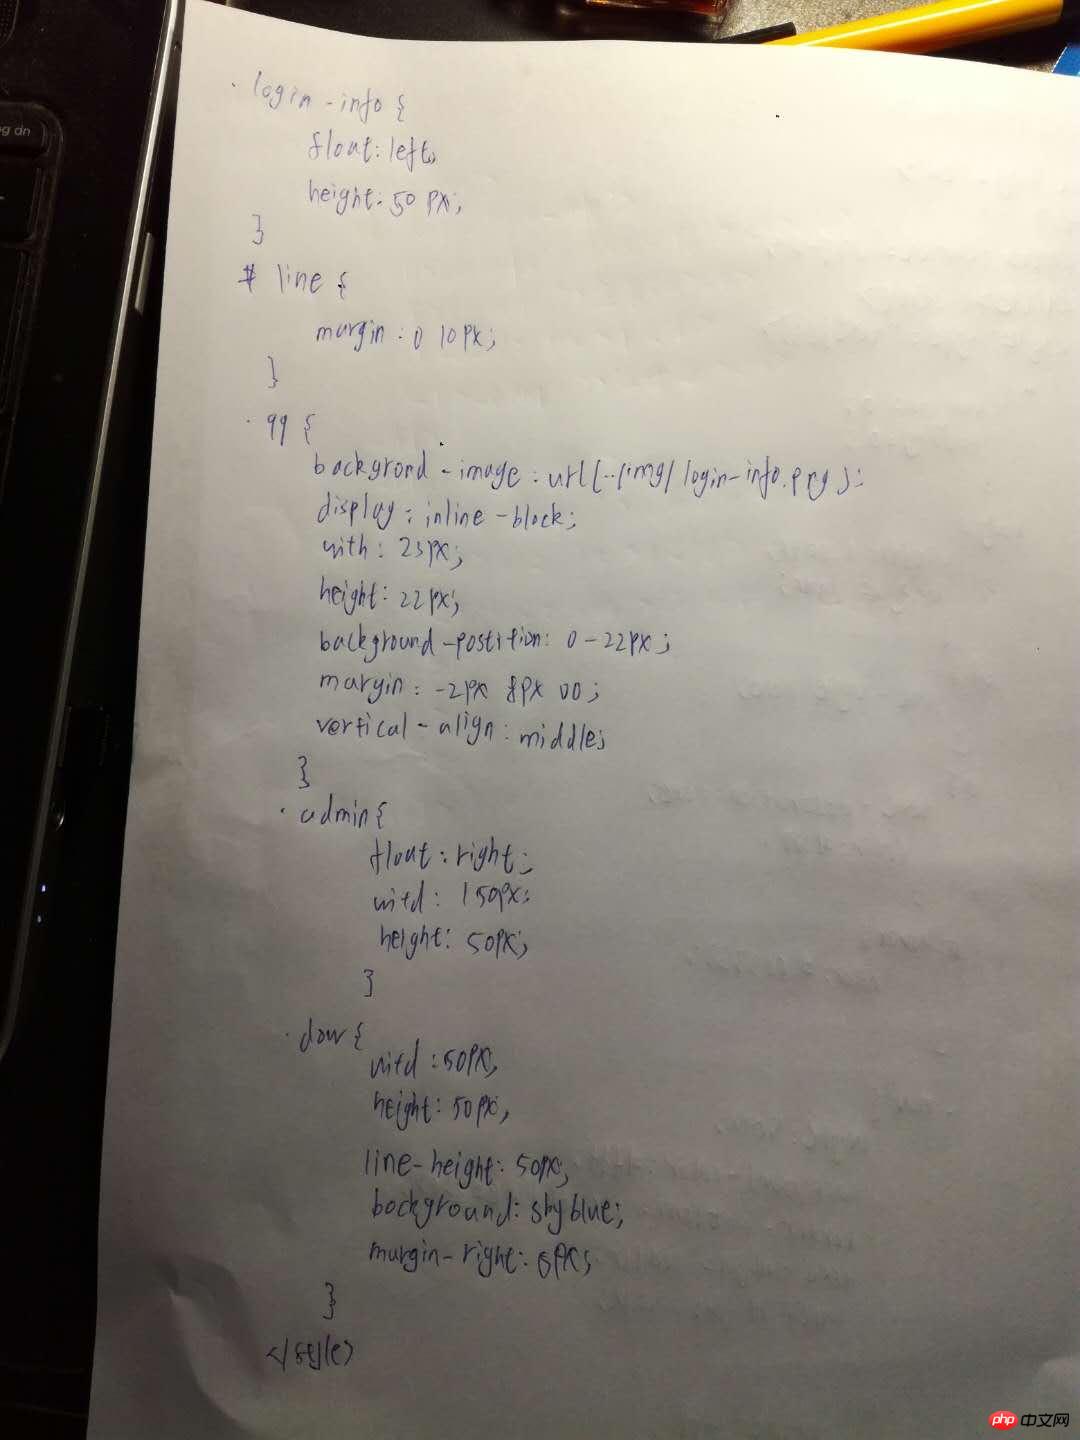 g dn
.login-info {
float: left;
height: 50px;
}
# line {
margin: 0 10px;
}
.qq {
backgrond-image: url(../img/login-info.png);
display: inline-block;
with: 23px;
height: 22px;
background-postition: 0 -22px;
margin: -2px 8px 00;
vertical-align: middle;
}
.admin{
float: right;
witd: 150px;
height: 50px;
}
.dow{
witd: 50px;
height: 50px;
line-height: 50px;
bockground: skyblue;
margin-right: 6px;
}
</style>
php 中文网